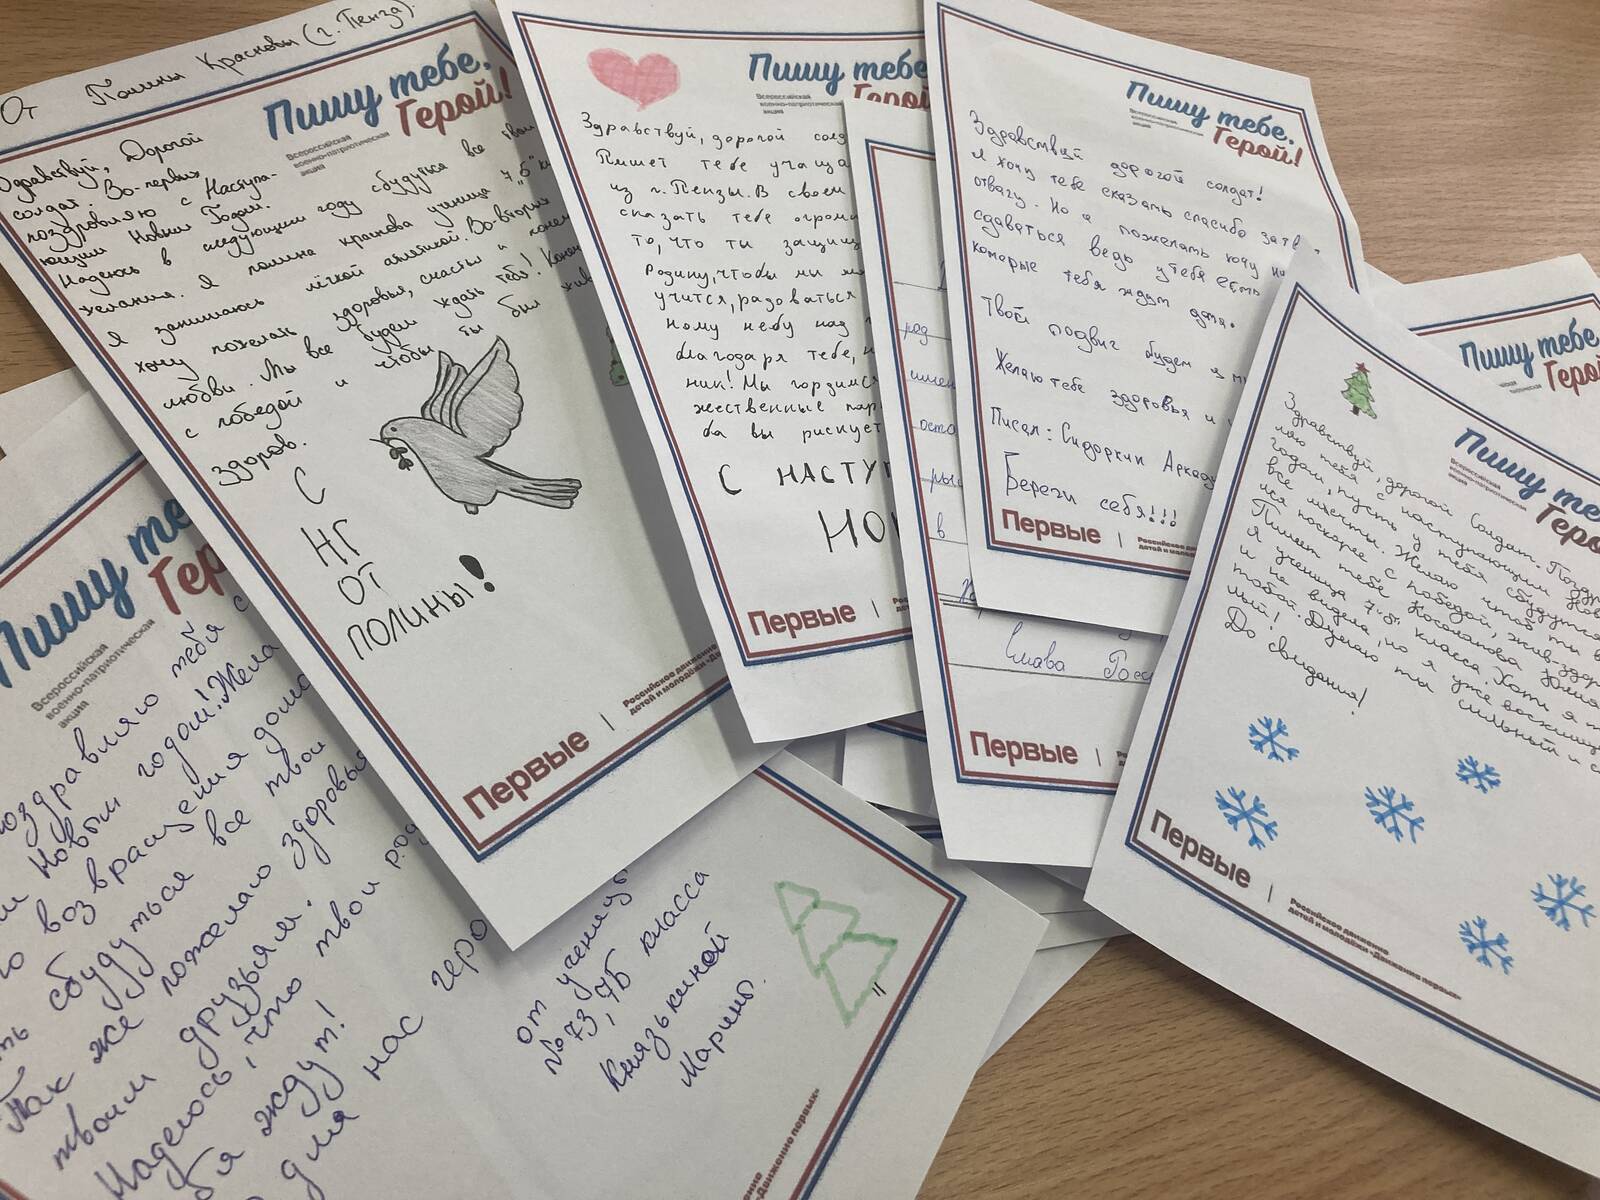 От Полины Красновы (г. Пенза).
Пишу тебе.
Герой!
Всероссийская
военно-патриотическая
акция
Здравствуй, Дорогой
солдат. Во-первых
поздровляю с Наступа-
ющим Новым Годом.
Надеюсь в следующим году сбудутся все твои
желания. Я полина краснова ученица 7 „Б"
Я занимаюсь лёгкой атлетикой. Во-вторых
хочу пожелать здоровья, счастья и
любви. Мы все будем ждать тебя!
с победой и чтобы ты был
здоров.
С
НГ
ОТ
ПОЛИНЫ!
Первые
Российское движение
детей и молодёжи «Дви
Пишу тебе
Герой
Всероссийская
военно-патриотическая
акция
Здравствуй, дорогой сол
Пишет тебе учаща
из г. Пензы. В своем
сказать тебе огром
то, что ты защищ
Родину, чтобы ми м
учится, радоваться
ному небу над
благодаря тебе,
ник! Мы гордимся
жественные пар
ба вы рискует
С НАСТУП
НОВ
Первые
род
имен
оста
рыс
в
Слава Росс
Первые
Пишу тебе.
Герой!
Здравствуй дорогой солдат!
Я хочу тебе сказать спасибо за тв
отвагу. Но а пожелать хочу не
сдаваться ведь у тебя есть
которые тебя ждут дома.
Твой подвиг будем
Желаю тебе здоровья и
Писал: Сидоркин Аркад
Береги себя!!!
Первые
Российское движение
детей и молодёжи
Пишу тебе.
Герой
Пишу тебе
Геро
Всероссийская
военно-патриотическая
акция
Здравствуй, дорогой Солдат. Поздр
ляю тебя с наступающим Нов
годом, пусть у тебя сбудутся
все мечты. Желаю чтоб ты в
лся поскорее с победой, жив-здор
Пишет тебе Косолапова Юлия
я ученица 7„Б" класса. Хоть я т
и не видела, но я уже восхищ
тобой. Думаю ты сильный и с
лый!
До свидания!
Первые
Российское движение
детей и молодёжи «Движение первых»
Пишу те
Гер
Всероссийская
военно-патриотическая
акция
оздравляю тебя с
Новым годом! Жела
о возвращения домо
ть сбудуться все твои
Так же пожелаю здоровья
твоим друзьям.
Надеюсь, что твои род
бя ждут!
для нас геро
от ученицы
№73, 7Б класса
Князькиной
Марины.
«Движение первых»